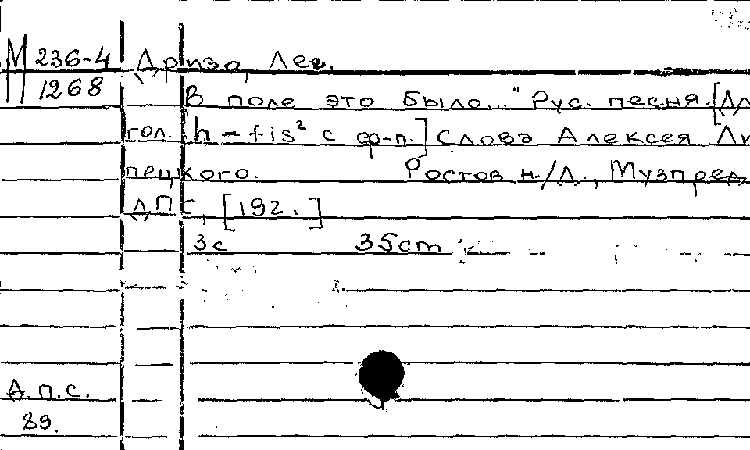 М 236-4 Дризо, Лев.
1268 В поле это было..." Рус. песня. [Дл
гол. h - fis² с фр-п.] Слова Алексея Ли
пецкого. Ростов н/Д., Музпред
ДПС, [192. ]
3с 35cm
Д.п.с.
39.